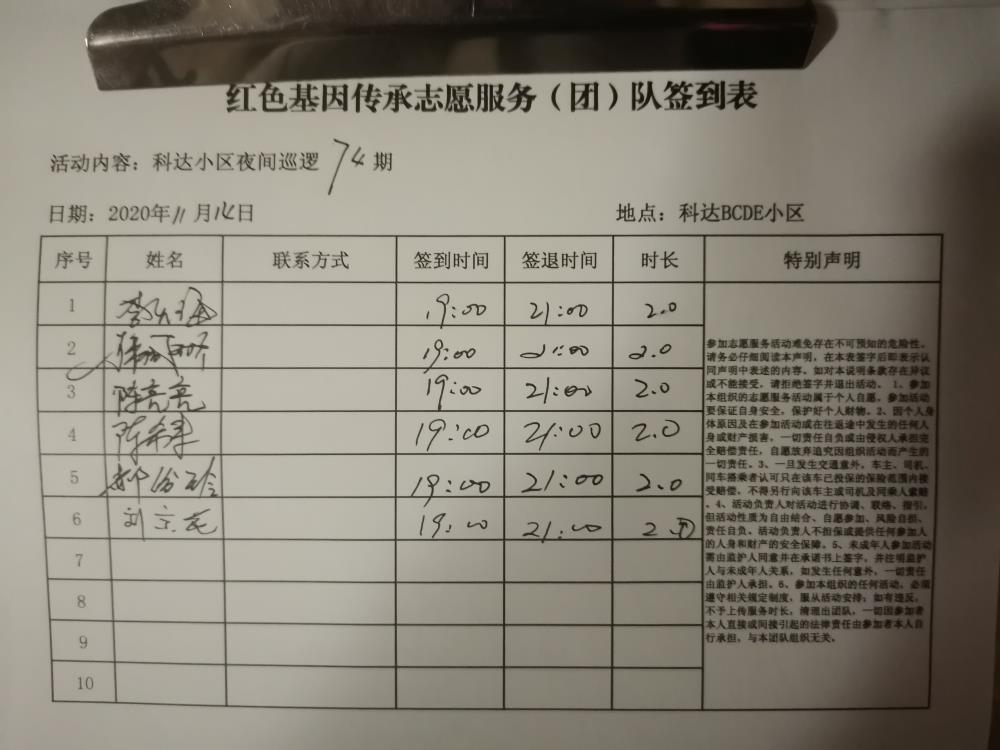 红色基因传承志愿服务（团）队签到表
活动内容：科达小区夜间巡逻 74 期
日期：2020年11月14日 地点：科达BCDE小区
序号 姓名 联系方式 签到时间 签退时间 时长 特别声明
1 19:00 21:00 2.0
2 19:00 21:00 2.0
3 陈亮亮 19:00 21:00 2.0
4 陈希军 19:00 21:00 2.0
5 19:00 21:00 2.0
6 刘京花 19:00 21:00 2
7
8
9
10
参加志愿服务活动难免存在不可预知的危险性。
请务必仔细阅读本声明，在本表签字后即表示认
同声明中表述的内容。如对本说明条款存在异议
或不能接受，请拒绝签字并退出活动。 1、参加
本组织的志愿服务活动属于个人自愿，参加活动
要保证自身安全，保护好个人财物。2、因个人身
体原因及在参加活动或在往返途中发生的任何人
身或财产损害，一切责任自负或由侵权人承担完
全赔偿责任，自愿放弃追究因组织活动而产生的
一切责任。3、一旦发生交通意外，车主、司机、
同车搭乘者认可只在该车已投保的保险范围内接
受赔偿，不得另行向该车主或司机及同乘人索赔
。4、活动负责人对活动进行协调、联络、指引，
但活动性质为自由结合、自愿参加、风险自担、
责任自负、活动负责人不担保或提供任何参加人
的人身和财产的安全保障。5、未成年人参加活动
需由监护人同意并在承诺书上签字，并注明监护
人与未成年人关系，如发生任何意外，一切责任
由监护人承担。6、参加本组织的任何活动，必须
遵守相关规定制度，服从活动安排；如有违反，
不予上传服务时长，清理出团队，一切因参加者
本人直接或间接引起的法律责任由参加者本人自
行承担，与本团队组织无关。